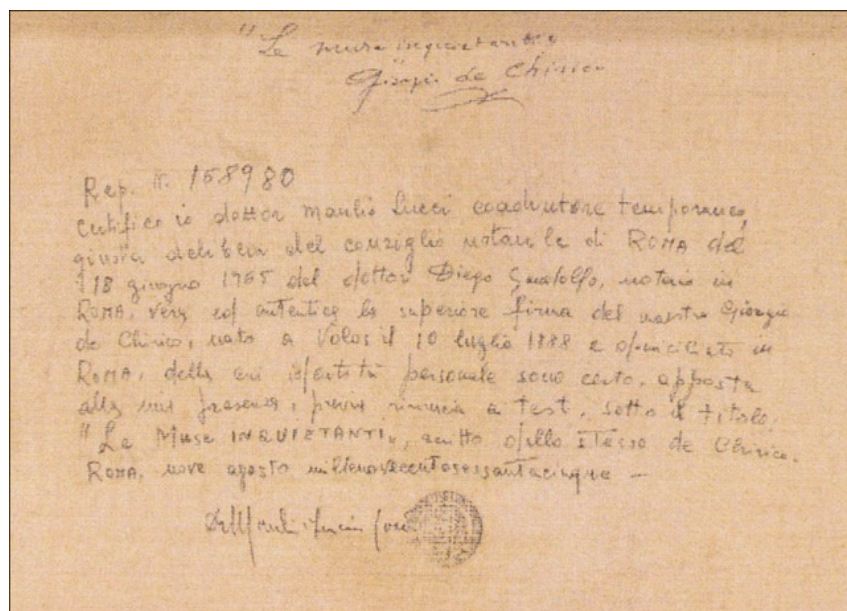 "Le muse inquietanti"
Giorgio de Chirico
Rep. N. 158980
Certifico io dottor Manlio Lucci coadiutore temporaneo,
giusta delibera del consiglio notarile di ROMA del
18 giugno 1965 del dottor Diego Gandolfo, notaio in
ROMA, vera ed autentica la superiore firma del maestro Giorgio
de Chirico, nato a Volos il 10 luglio 1888 e domiciliato in
ROMA, della cui identità personale sono certo, apposta
alla mia presenza, previa rinuncia a test. sotto il titolo:
"Le Muse INQUIETANTI", scritto dallo stesso de Chirico.
ROMA, nove agosto millenovecentosessantacinque —